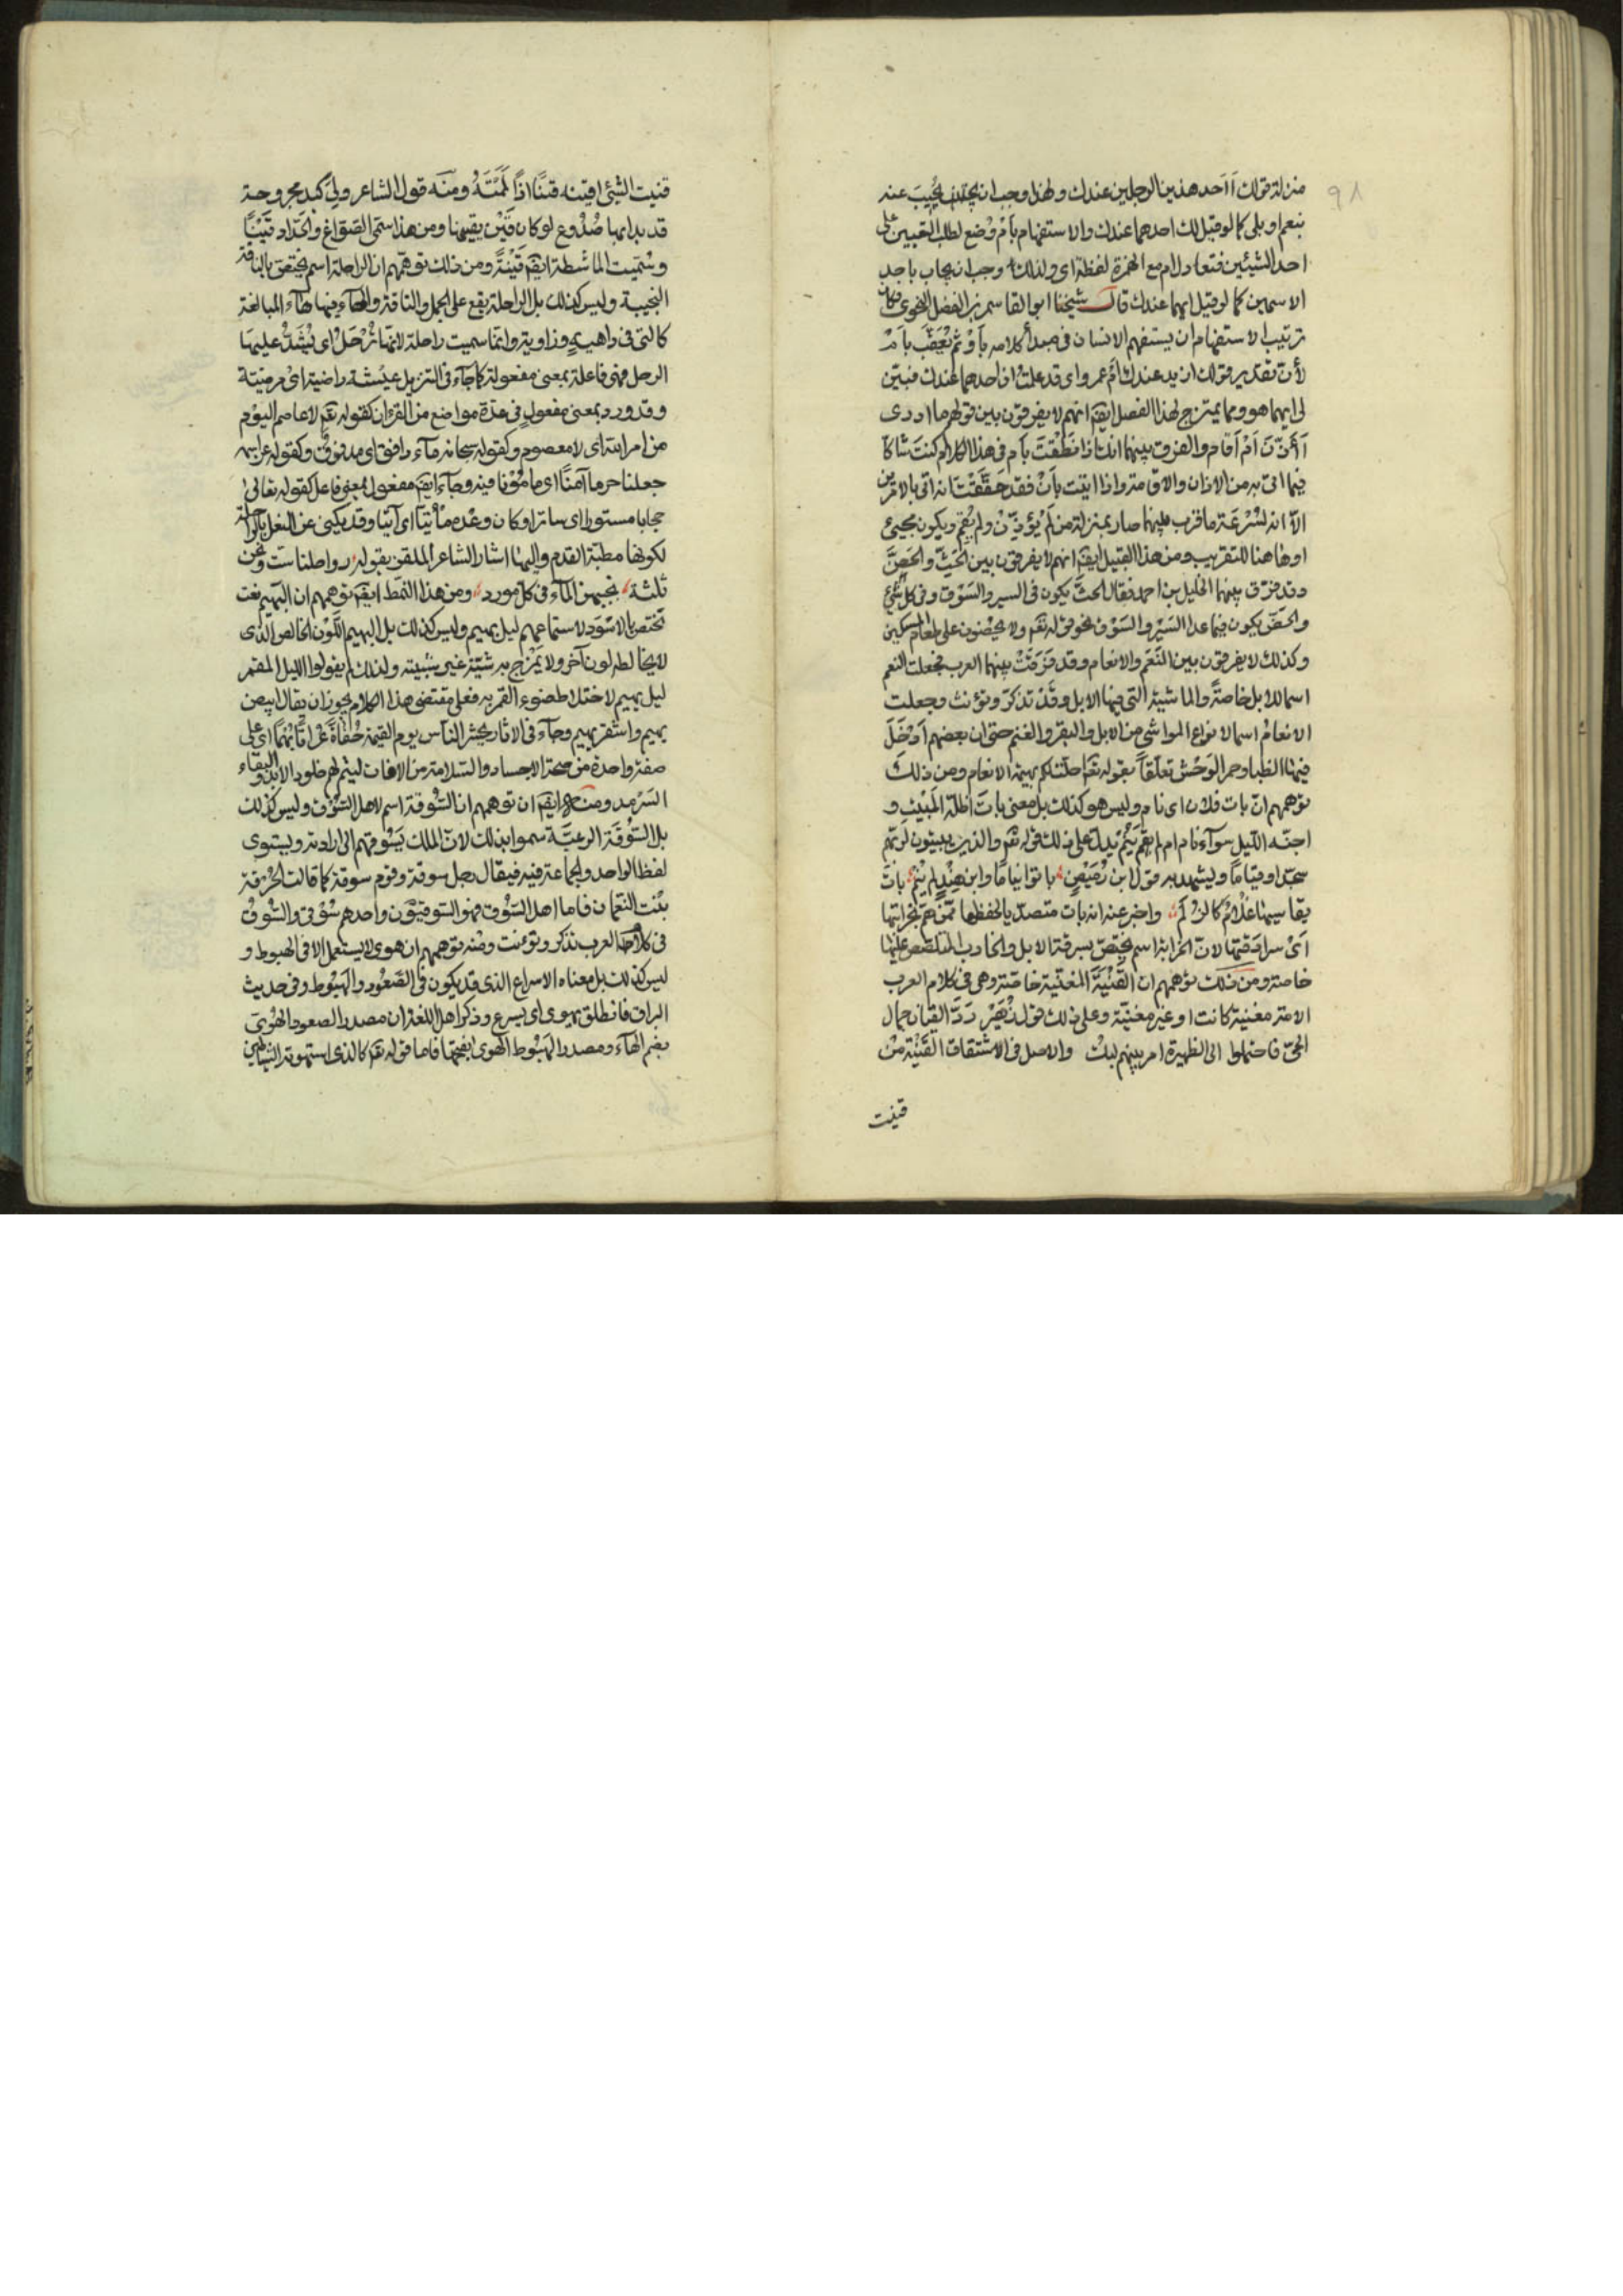 ٩٨
منزلة قولك أأحد هذين الرجلين عندك ولهذا وجب ان يجيب عنه
بنعم او بلى كما لو قيل لك احدهما عندك والاستفهام بأم وضع لطلب التعيين على
احد الشيئين فتعادل ام مع الهمزة لفظة اى ولذلك وجب ان يجاب باحد
الاسمين كما لو قيل ايهما عندك قال شيخنا ابو القاسم بن الفضل النحوى
ترتيب الاستفهام ان يستفهم الانسان فى مبدأ كلامه بأو ثم يعقب بأم
لأن تقدير قولك ازيد عندك أم عمرو اى قد علمت ان احدهما عندك فبين
لى ايهما هو ومما يمتزج بهذا الفصل ايضا انهم لا يفرقون بين قولهم ما ادرى
أأذّن أم أقام والفرق بينهما انك اذا نطقت بأم فى هذا الكلام كنت شاكا
فيما اتى به من الاذان والاقامة واذا اتيت بأو فقد حققت انه اتى بالامرين
الا انه لسرعة ما قرب بينهما صار بمنزلة من لم يؤذّن ولم يقم ويكون مجىء
او هاهنا للتقريب ومن هذا القبيل ايضا انهم لا يفرقون بين الحثّ والحضّ
وقد فرق بينهما الخليل بن احمد فقال الحث يكون فى السير والسوق وفى كل شىء
والحض يكون فيما عدا السير والسوق نحو قوله تعم ولا يحضون على طعام المسكين
وكذلك لا يفرقون بين النعم والانعام وقد فرقت بينهما العرب فجعلت النعم
اسما للابل خاصة والماشية التى فيها الابل وقد تذكر وتؤنث وجعلت
الانعام اسما لانواع المواشى من الابل والبقر والغنم حتى ان بعضهم أدخل
فيها الظبا وحمر الوحش تعلقا بقوله تعم احلت لكم بهيمة الانعام ومن ذلك
توهمهم ان بات فلان اى نام وليس هو كذلك بل معنى بات اظله المبيت و
اجنه الليل سوآء نام ام لم ينم يدل على ذلك قوله تعم والذين يبيتون لربهم
سجدا وقياما ويشهد به قول ابن رميض باتوا نياما وابن هند لم ينم بات
يقاسيها غلام كالزلم واخبر عنه انه بات متصديا لحفظها ممن هم بخرابتها
اى سرقتها لان الخرابة اسم يختص بسرقة الابل والخارب المتلصص عليها
خاصة ومن ذلك توهمهم ان القينة المغنية خاصة وهى فى كلام العرب
الامة مغنية كانت او غير مغنية وعلى ذلك قول زهير ردّ القيان جمال
الحىّ فاحتملوا الى الظهيرة امر بينهم لبك والاصل فى الاشتقاق القينة من
قينت
قنيت الشىء اقينه قينا اذا لممته ومنه قول الشاعر ولى كبد مجروحة
قد بدا بها صدوع لو كان قين يقينها ومن هذا سمى الصوّاغ والحدّاد قينا
وسميت الماشطة ايضا قينة ومن ذلك توهمهم ان الراحلة اسم يختص بالناقة
النجيبة وليس كذلك بل الراحلة يقع على الجمل والناقة والهاء فيها هاء المبالغة
كالتى فى داهية وراوية وانما سميت راحلة لانها ترحل اى يشدّ عليها
الرحل فهى فاعلة بمعنى مفعولة كما جآء فى التنزيل عيشة راضية اى مرضية
وقد ورد بمعنى مفعول فى عدة مواضع من القرآن كقوله تعم لا عاصم اليوم
من امر الله اى لا معصوم وكقوله سبحانه مآء دافق اى مدفوق وكقوله عز اسمه
جعلنا حرما آمنا اى مأمونا فيه وجآء ايضا مفعول بمعنى فاعل كقوله تعالى
حجابا مستورا اى ساترا وكان وعده مأتيا اى آتيا وقد يكنى عن النعل بالراحلة
لكونها مطية القدم واليها اشار الشاعر الملغز بقوله رواحلنا ست ونحن
ثلثة نجنبهن المآء فى كل مورد ومن هذا النمط ايضا توهمهم ان البهيم نعت
تختص بالاسود لاستماعهم ليل بهيم وليس كذلك بل البهيم اللون الخالص الذى
لا يخالطه لون آخر ولا يمتزج به شية غير شيته ولذلك لم يقولوا الليل المقمر
ليل بهيم لاختلاط ضوء القمر به فعلى مقتضى هذا الكلام يجوز ان يقال ابيض
بهيم واشقر بهيم وجآء فى الاثار يحشر الناس يوم القيمة حفاة عراة بهما اى على
صفة واحدة من صحة الاجساد والسلامة من الافات ليتم لهم خلود الابد والبقاء
السرمد ومن ايضا ان توهمهم ان السوقة اسم لاهل السوق وليس كذلك
بل السوقة الرعية سموا بذلك لان الملك يسوقهم الى ارادته ويستوى
لفظ الواحد والجماعة فيه فيقال رجل سوقة وقوم سوقة كما قالت الحرقة
بنت النعمان فاما اهل السوق فهم السوقيون واحدهم سوقى والسوق
فى كلام العرب تذكر وتؤنث ومنه توهمهم ان هوى لا يستعمل الا فى الهبوط و
ليس كذلك بل معناه الاسراع الذى قد يكون فى الصعود والهبوط وفى حديث
البراق فانطلق يهوى اى يسرع وذكر اهل اللغة ان مصدر الصعود الهوى
بضم الهآء ومصدر الهبوط الهوى بفتحها فاما قوله تعم كالذى استهوته الشياطين